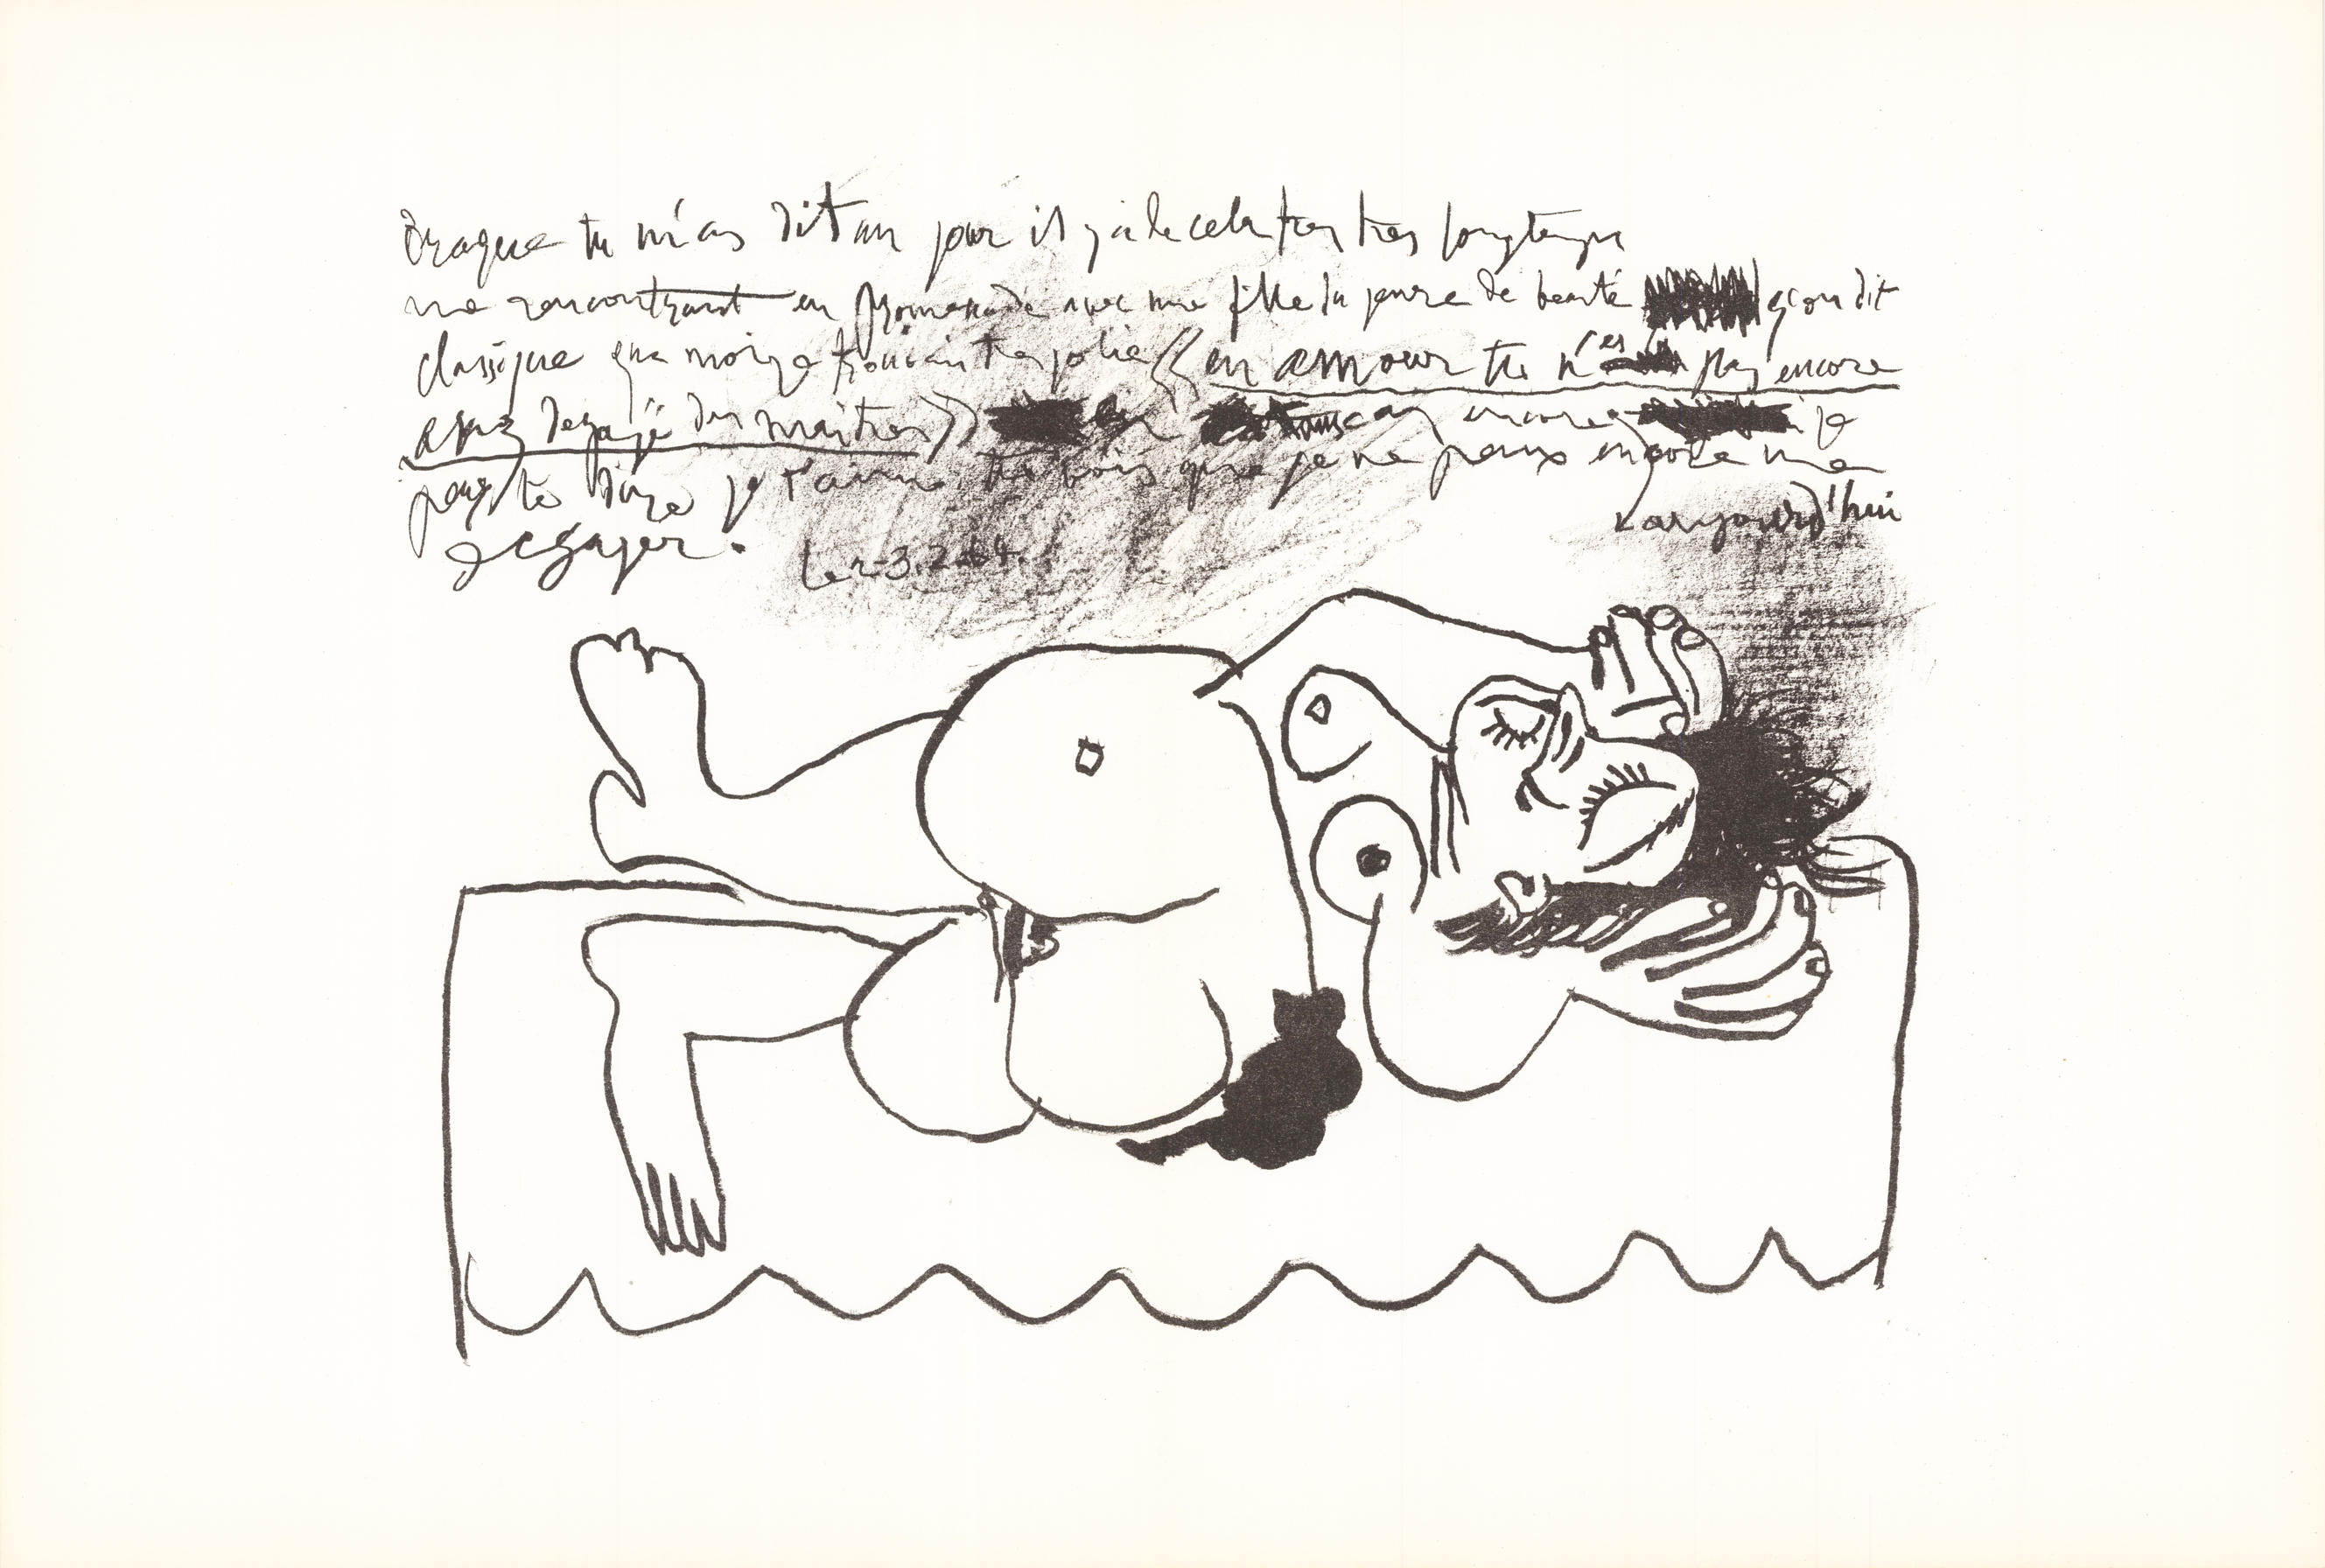 Braque tu m'as dit un jour il y a de cela tres tres longtemps
me rencontrant en promenade avec une fille du genre de beauté qu'on dit
classique que moi je trouvais tres jolie « en amour tu n'es pas encore
assez degagé des maitres » en cas encore aujourd'hui je
peux te dire je t'aime tu vois que je ne peux encore me
degager.
Le 3.2.64.